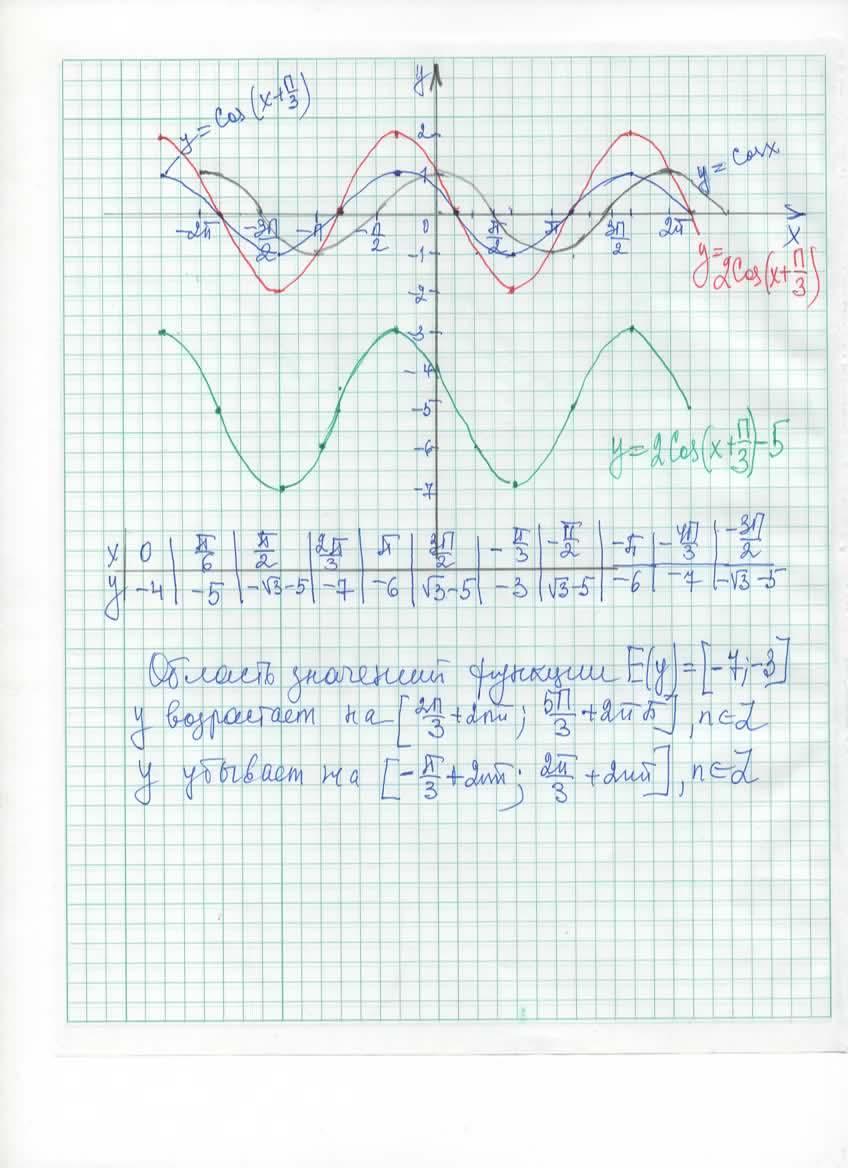 y
y=cos(x+π/3)
2
1
y=cosx
-2π -3π/2 -π -π/2 0 π/2 π 3π/2 2π x
-1
-2
y=2cos(x+π/3)
-3
-4
-5
y=2cos(x+π/3)-5
-6
-7
x | 0 | π/6 | π/2 | 2π/3 | π | 3π/2 | -π/3 | -π/2 | -π | -4π/3 | -3π/2
y | -4 | -5 | -√3-5 | -7 | -6 | √3-5 | -3 | √3-5 | -6 | -7 | -√3-5
Область значений функции E(y)=[-7;-3]
y возрастает на [2π/3+2πn; 5π/3+2πn], n∈Z
y убывает на [-π/3+2πn; 2π/3+2πn], n∈Z